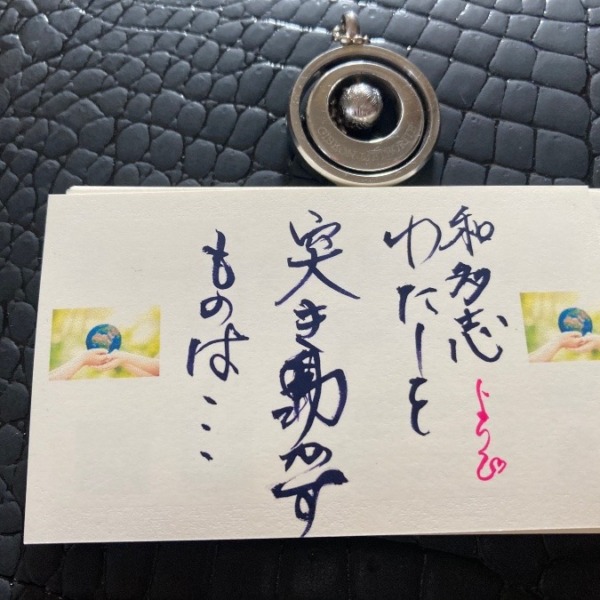 和多志
わたしを
突き動かす
ものは・・・